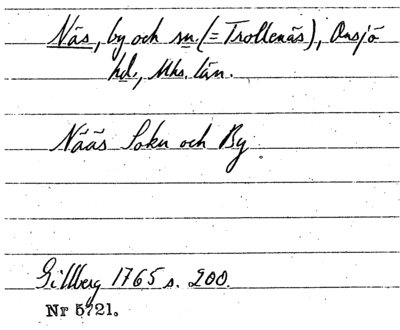 Näs, by och sn. (= Trollenäs), Onsjö
hd., Mhs. län.
Nääs Sokn och By
Gillberg 1765 s. 200.
Nr 5721.